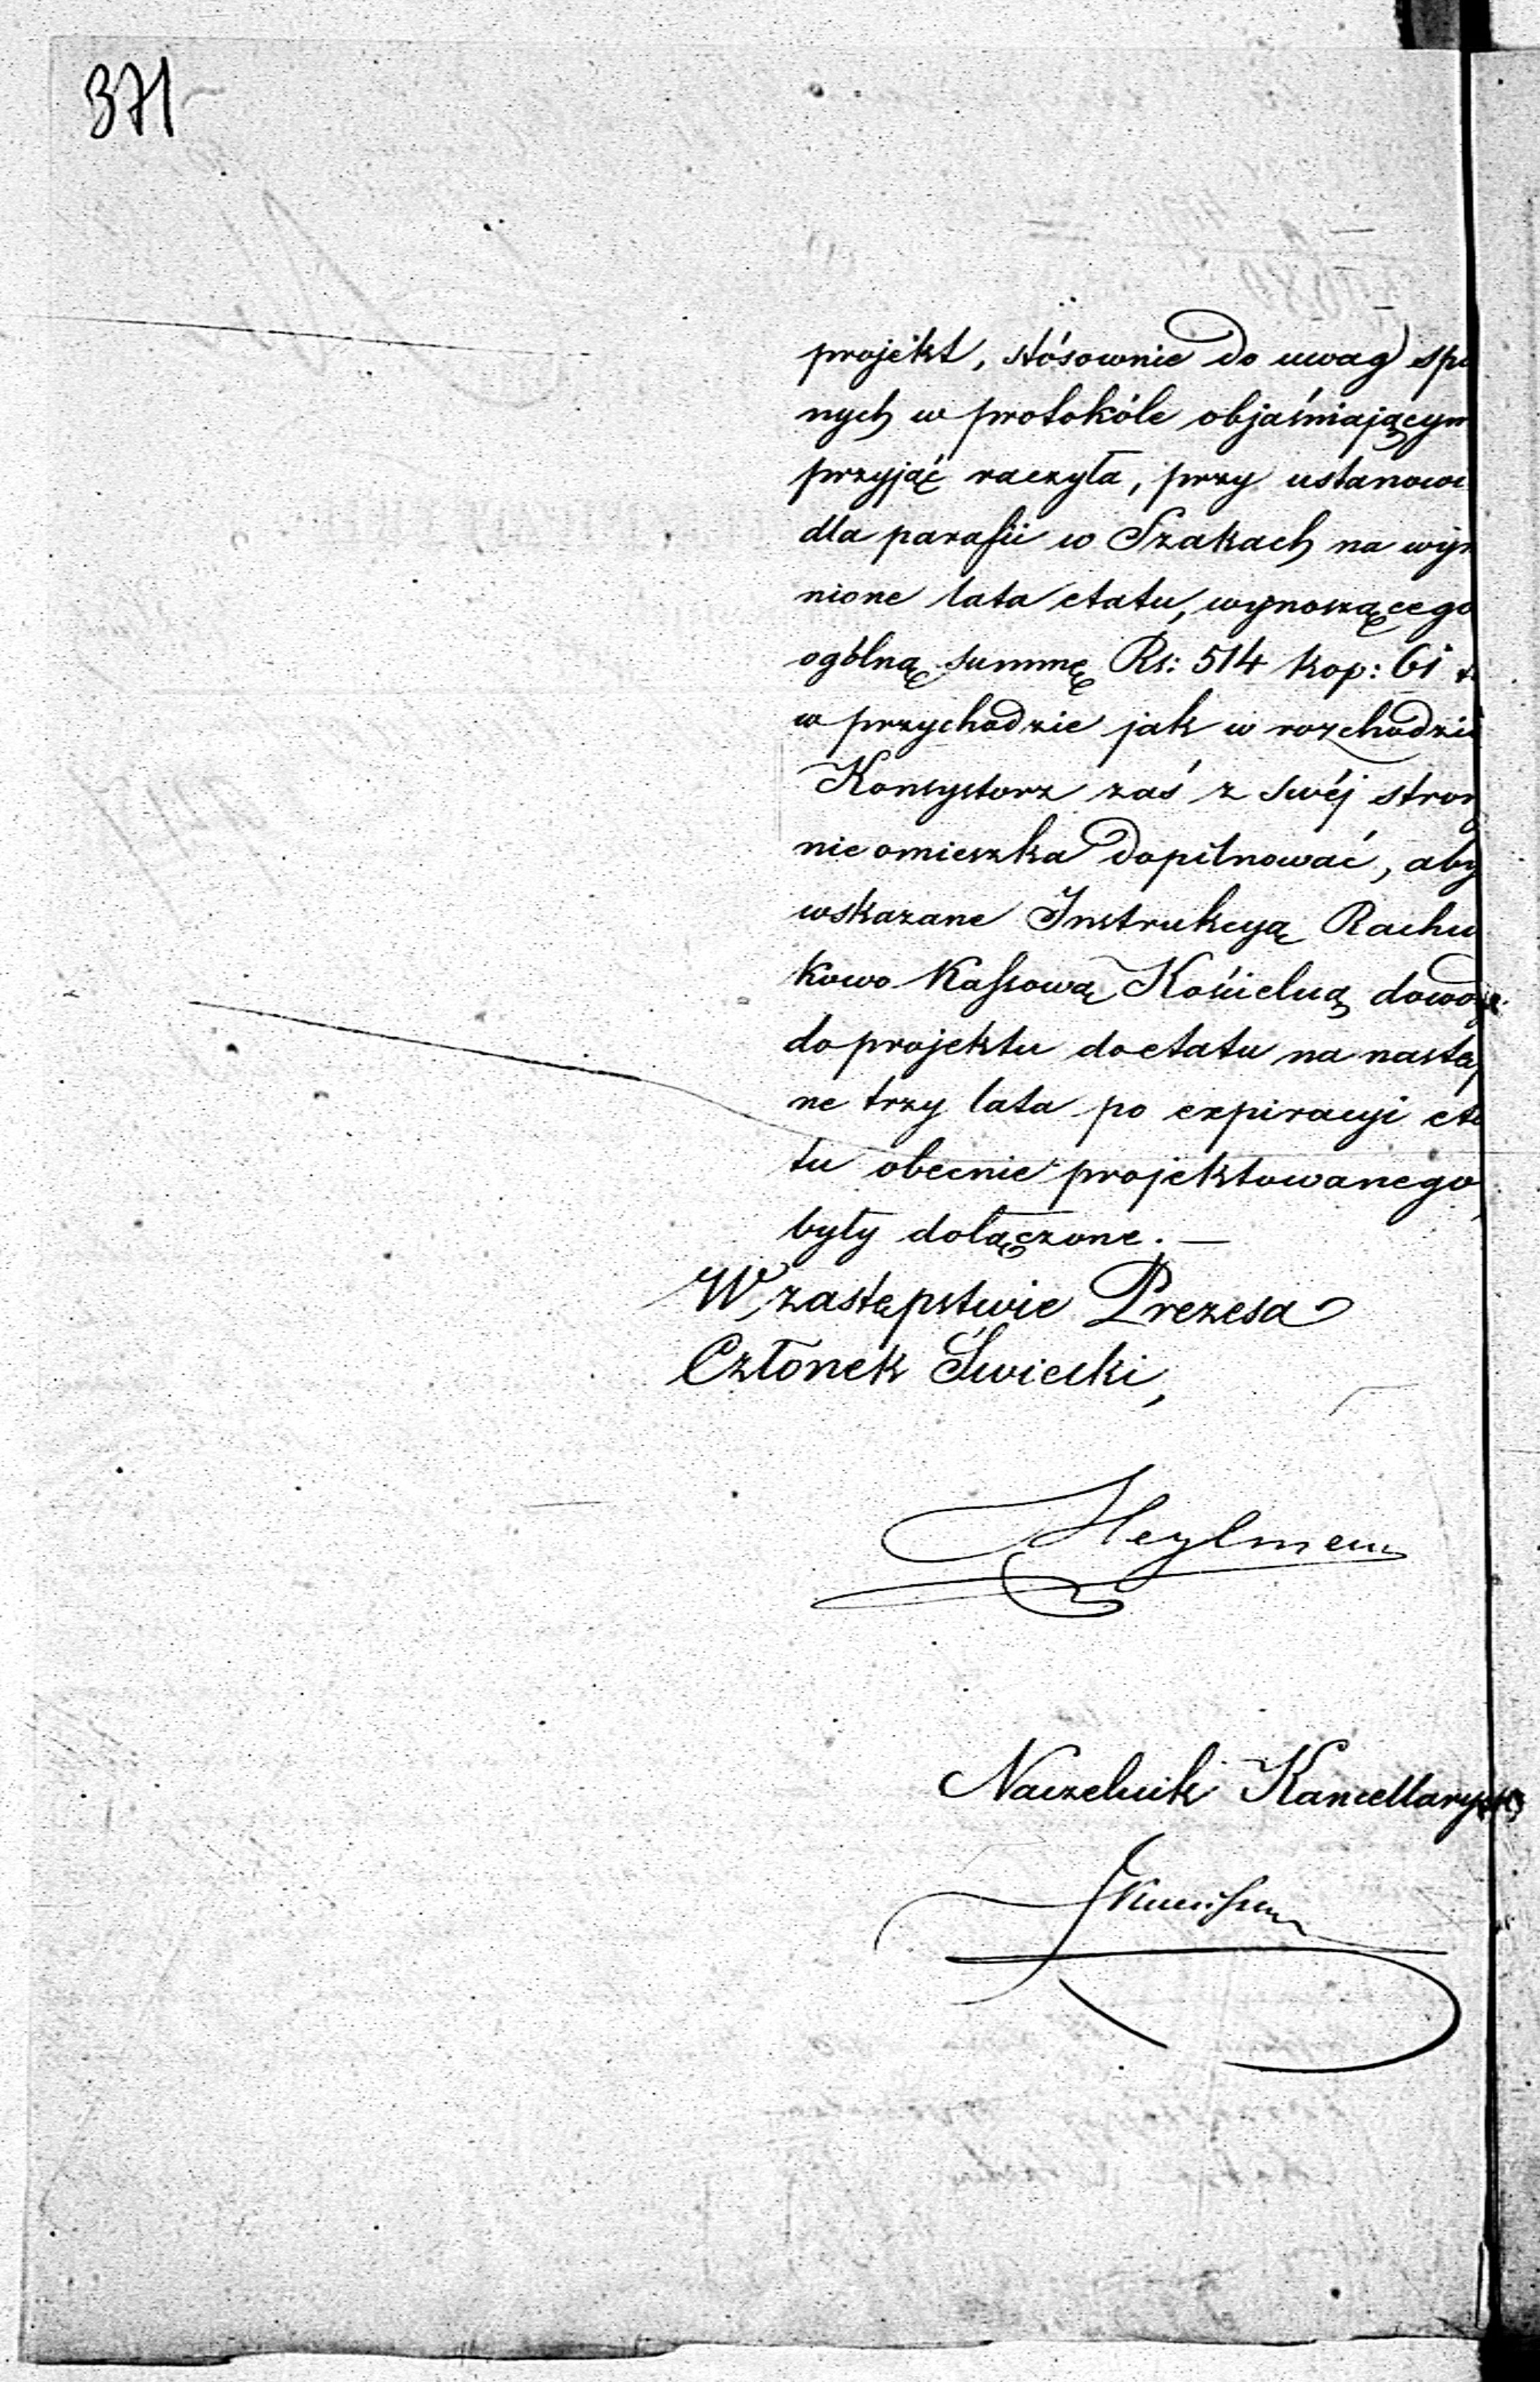 371
projekt, stósownie do uwag
nych w protokóle objaśniającym
przyjąć raczyła, przy ustanowi
dla parafii w Szakach na wy
nione lata etatu, wynoszącego
ogólną summę Rs: 514 kop: 61
w przychodzie jak w rozchodzie
Konsystorz zaś z swéj stron
nieomieszka dopilnować, aby
wskazane Instrukcyą Rachu
kowo Kassową Kościelną dowo
do projektu do etatu na nastę
ne trzy lata po expiracyi eta
tu obecnie projektowanego
były dołączone. —
W zastępstwie Prezesa
Członek Świecki,
Heylman
Naczelnik Kancellaryi